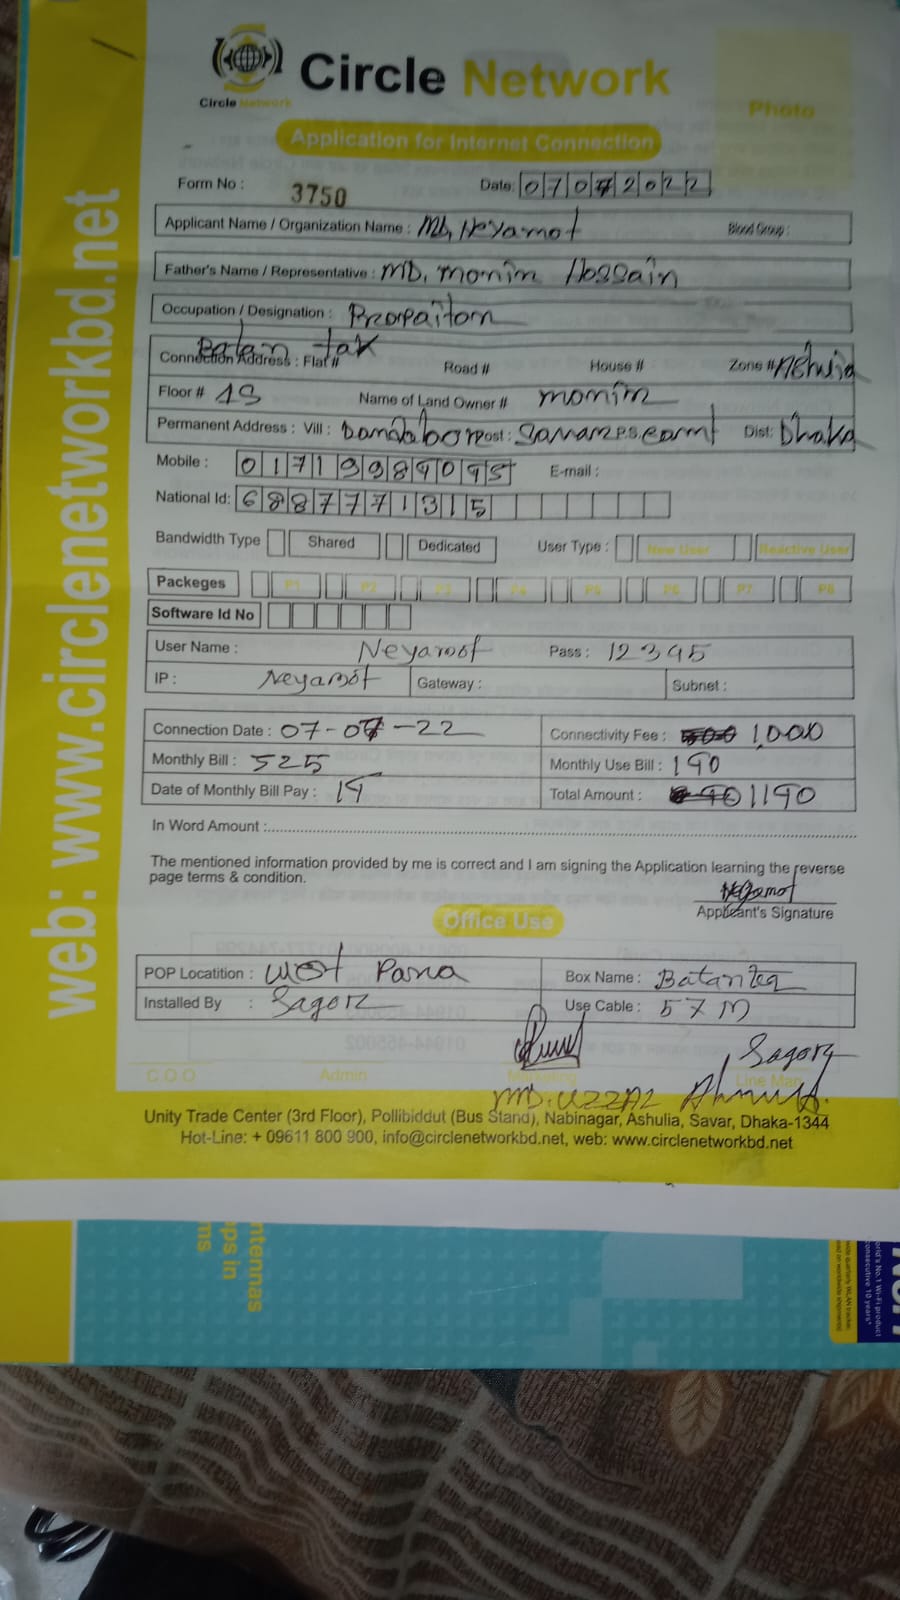 Circle Network
Circle Network
Photo
Application for Internet Connection
Form No : 3750 Date: 07072022
Applicant Name / Organization Name : Md, Neyamot Blood Group :
Father's Name / Representative : MD, monim Hossain
Occupation / Designation : Prorpaitorn
Batan tak
Connection Address : Flat # Road # House # Zone # Ashulia
Floor # Name of Land Owner # monim
Permanent Address : Vill : Post : Dist: Dhaka
Mobile : E-mail :
National Id: 6887771315
Bandwidth Type Shared Dedicated User Type : New User Reactive User
Packeges P1 P2 P3 P4 P5 P6 P7 P8
Software Id No
User Name : Neyamot Pass : 12345
IP : Neyamot Gateway : Subnet :
Connection Date : 07-07-22 Connectivity Fee : 1,000
Monthly Bill : 525 Monthly Use Bill : 190
Date of Monthly Bill Pay : Total Amount : 1190
In Word Amount :
The mentioned information provided by me is correct and I am signing the Application learning the reverse
page terms & condition.
Neyamot
Applicant's Signature
Office Use
POP Locatition : West Para Box Name :
Installed By : Sagor Use Cable : 57 M
Sagor
C.O.O Admin Marketing Line Man
MD. UZZAL
Unity Trade Center (3rd Floor), Pollibiddut (Bus Stand), Nabinagar, Ashulia, Savar, Dhaka-1344
Hot-Line: + 09611 800 900, info@circlenetworkbd.net, web: www.circlenetworkbd.net
web: www.circlenetworkbd.net
ntennas
ps in
ms
orld's No.1 Wi-Fi product
consecutive 10 years*